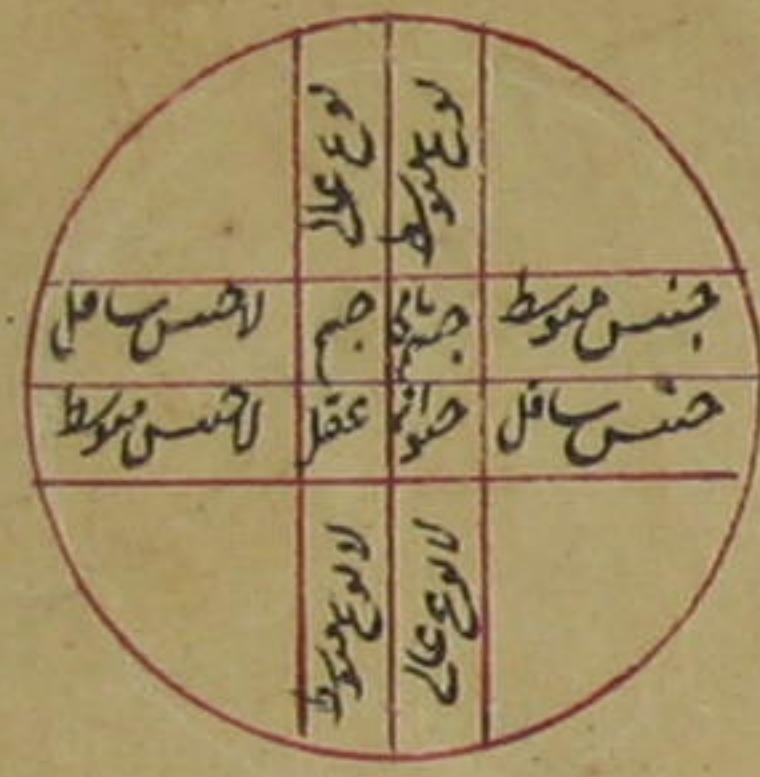 نوع متوسط
نوع عالی
جنس متوسط
جسم نامی
جسم
لا جنس سافل
جنس سافل
حیوان
عقل
لا جنس متوسط
لا نوع عالی
لا نوع متوسط